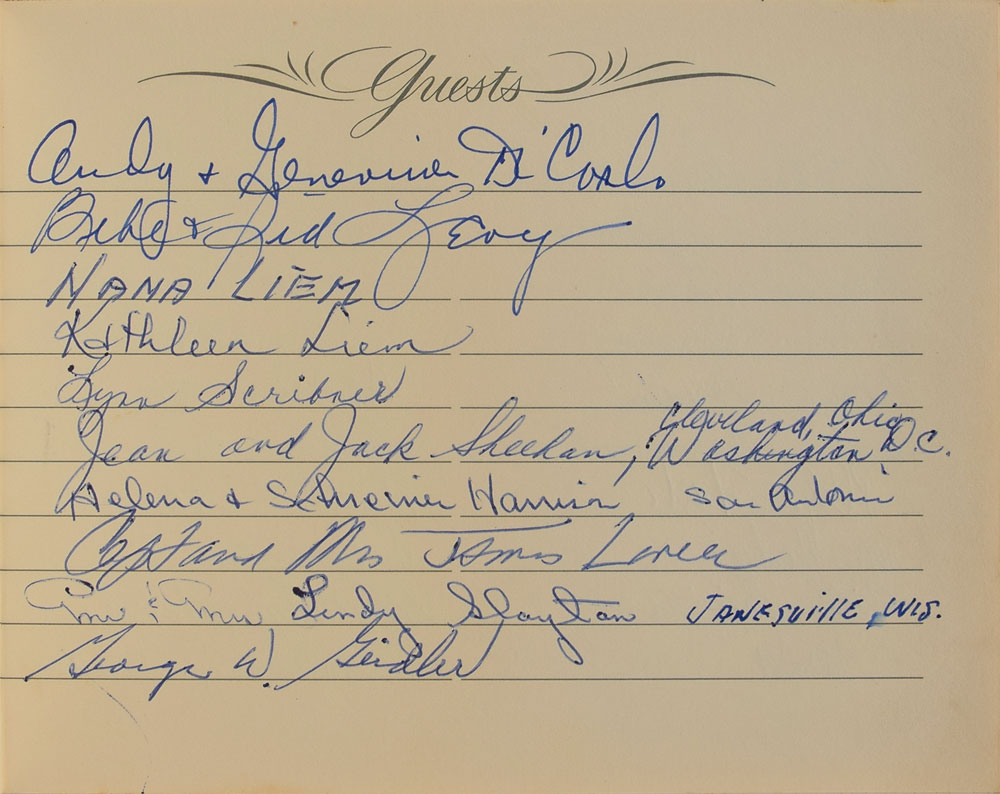 Guests
Andy & Genevieve Di Carlo
Bebe & Sid Levy
NANA LIEM
Kathleen Liem
Lynn Scribner
Jean and Jack Sheehan, Cleveland, Ohio
Washington D.C.
Helena & Schreiner Harrison San Antonio
Capt and Mrs James Lovell
Mr & Mrs Lindy Slayton JANESVILLE, WIS.
George W. Geidler